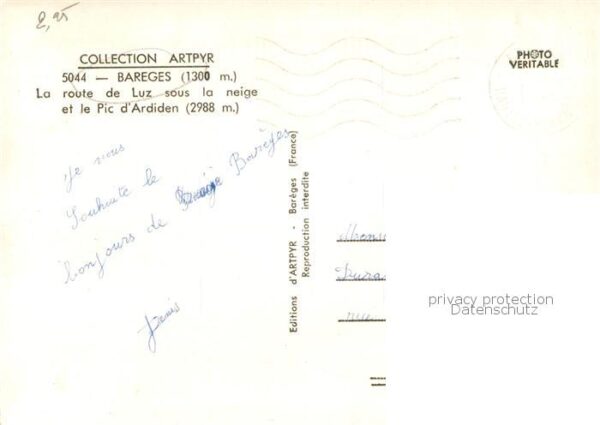 2,95
COLLECTION ARTPYR
5044 — BAREGES (1300 m.)
La route de Luz sous la neige
et le Pic d'Ardiden (2988 m.)
PHOTO
VERITABLE
Je vous
Souhaite le
bonjours de Barèges
Denis
Editions d'ARTPYR - Barèges (France)
Reproduction interdite
Monsi
Dura
rue
privacy protection
Datenschutz